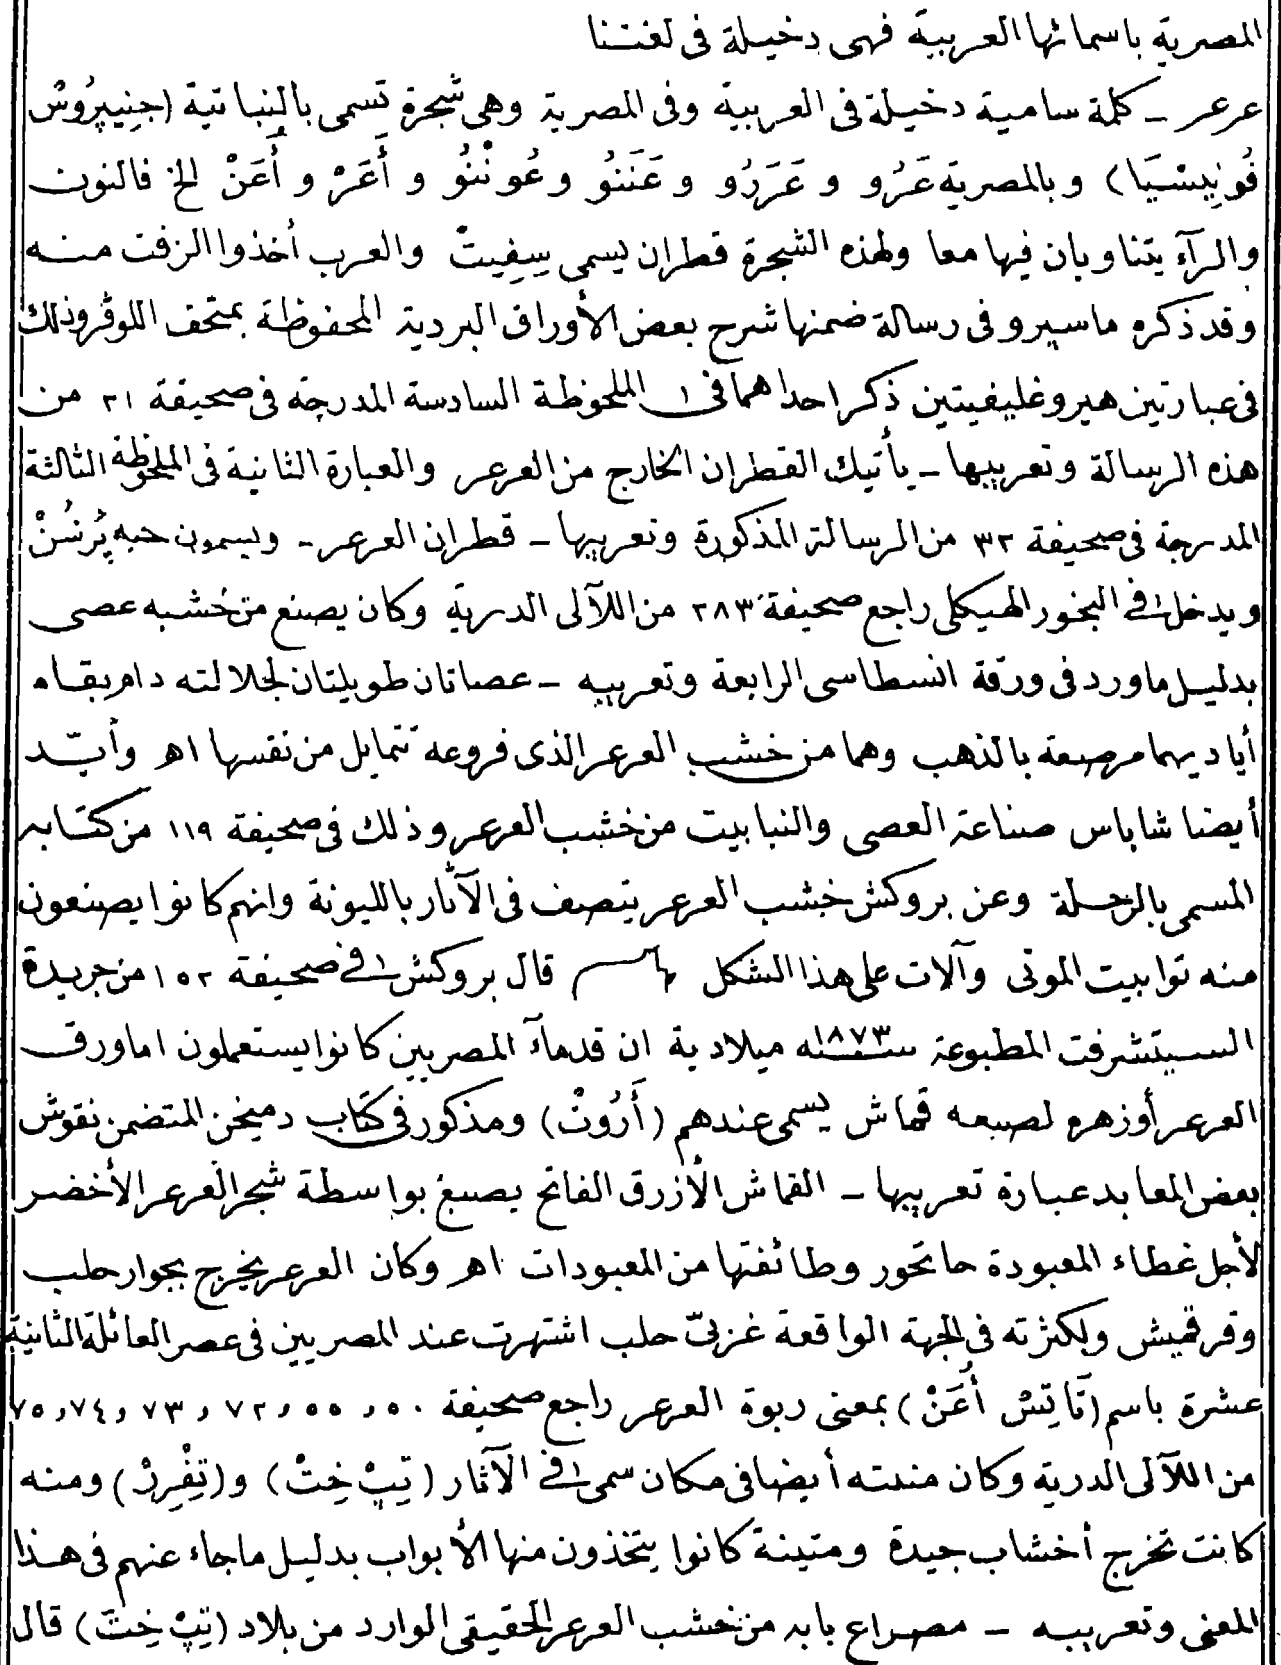 المصرية باسمائها العربية فهى دخيلة فى لغتنا
عرعر - كلمة سامية دخيلة فى العربية وفى المصرية وهى شجرة تسمى بالنباتية (جِنِيپِرُوسْ
فُونِيسْيَا) وبالمصرية عَرُو و عَرَرُو و عَنَنُو وعُونْنُو و أَعَرْ و أُعَنْ الخ فالنون
والرآء يتناوبان فيها معا ولهذه الشجرة قطران يسمى سِفِيتْ والعرب أخذوا الزفت منه
وقد ذكره ماسپرو فى رسالة ضمنها شرح بعض الأوراق البردية المحفوظة بمتحف اللوڤر وذلك
فى عبارتين هيروغليفيتين ذكر احداهما فى الملحوظة السادسة المدرجة فى صحيفة ٢١ من
هذه الرسالة وتعريبها - يأتيك القطران الخارج من العرعر والعبارة الثانية فى الملحوظة الثالثة
المدرجة فى صحيفة ٣٢ من الرسالة المذكورة وتعريبها - قطران العرعر - ويسمون حبه پُرشُنْ
ويدخل فى البخور الهيكلى راجع صحيفة ٢٨٣ من اللآلى الدرية وكان يصنع من خشبه عصى
بدليل ماورد فى ورقة انسطاسى الرابعة وتعريبه - عصاتان طويلتان لجلالته دام بقاه
أياديهما مرصعة بالذهب وهما من خشب العرعر الذى فروعه تتمايل من نفسها اه وأيّد
أيضا شاباس صناعة العصى والنبابيت من خشب العرعر وذلك فى صحيفة ١١٩ من كتابه
المسمى بالرحلة وعن بروكش خشب العرعر يتصف فى الآثار بالليونة وانهم كانوا يصنعون
منه توابيت الموتى وآلات على هذا الشكل قال بروكش فى صحيفة ١٥٢ من جريدة
السيتشرفت المطبوعة سنة ١٨٧٣ ميلادية ان قدمآء المصريين كانوا يستعملون اما ورق
العرعر أو زهره لصبعه قماش يسمى عندهم (أَرُوتْ) ومذكور فى كتاب دميخن المتضمن نقوش
بعض المعابد عبارة تعريبها - القماش الأزرق الفاتح يصبغ بواسطة شجر العرعر الأخضر
لأجل غطاء المعبودة حاتحور وطائفتها من المعبودات اه وكان العرعر يخرج بجوار حلب
وقرقميش ولكثرته فى الجهة الواقعة غربىّ حلب اشتهرت عند المصريين فى عصر العائلة الثانية
عشرة باسم (تَاتِسْ أُعَنْ) بمعنى ربوة العرعر راجع صحيفة ٥٠ ,٥٥ ,٧٢ ,٧٣ ,٧٤ ,٧٥
من اللآلى الدرية وكان منبته أيضا فى مكان سمى فى الآثار (تِپْ خِتْ) و(تِفْرِرْ) ومنه
كانت تخرج أخشاب جيدة ومتينة كانوا يتخذون منها الأبواب بدليل ماجاء عنهم فى هذا
المعنى وتعريبه - مصراع بابه من خشب العرعر الحقيقى الوارد من بلاد (تِپْ خِتْ) قال